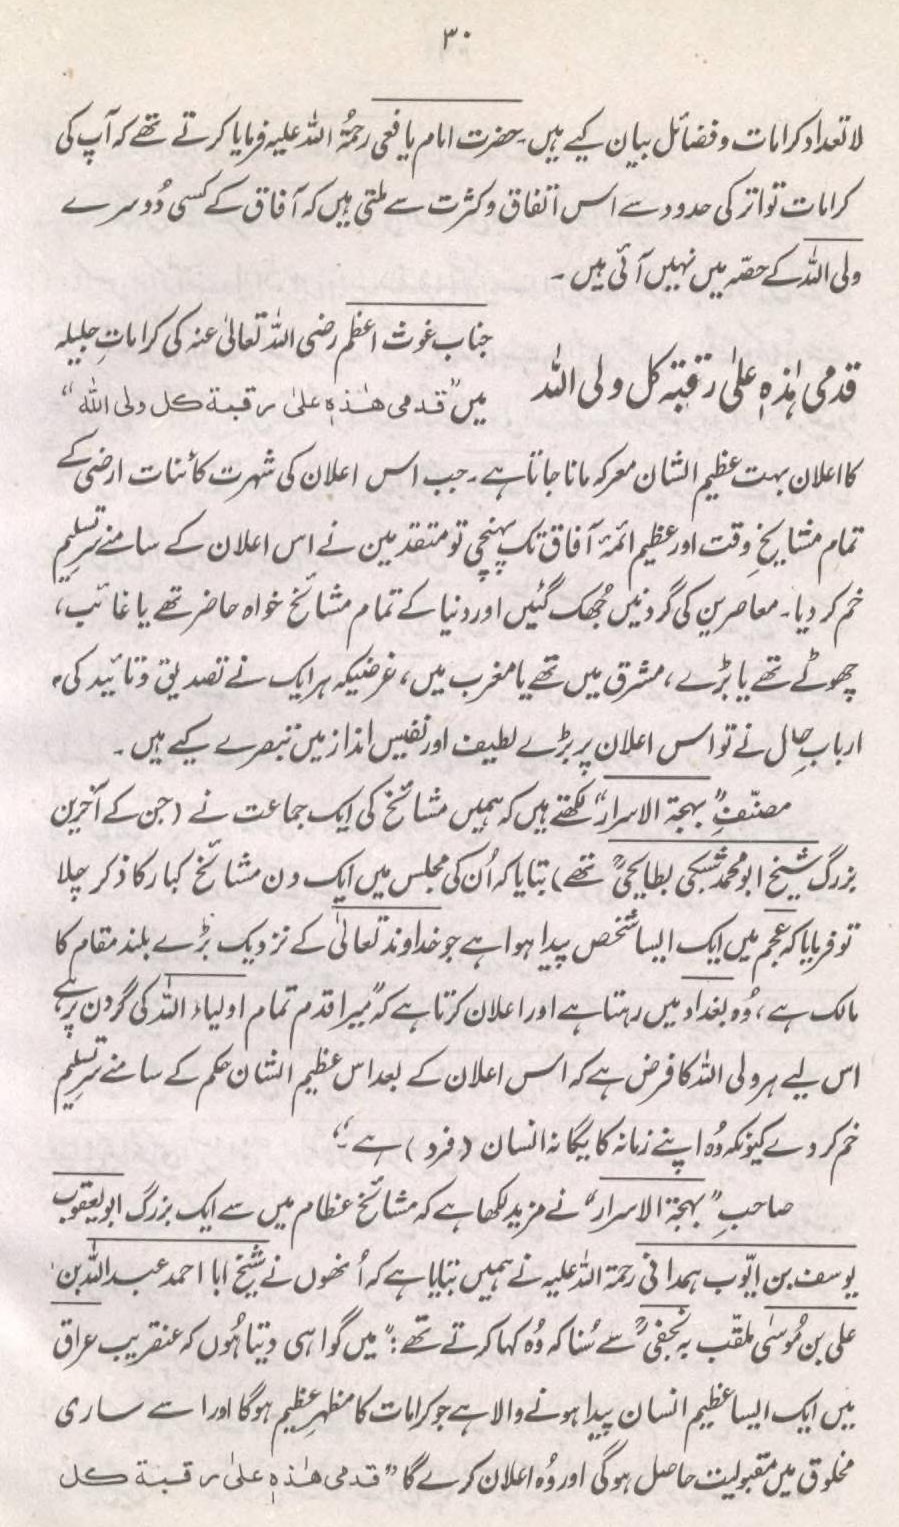 ۳۰
لا تعداد کرامات و فضائل بیان کیے ہیں۔ حضرت امام یافعی رحمۃ اللہ علیہ فرمایا کرتے تھے کہ آپ کی
کرامات تواتر کی حدود سے اس اتفاق و کثرت سے ملتی ہیں کہ آفاق کے کسی دُوسرے
ولی اللہ کے حصّہ میں نہیں آئی ہیں۔
قدمی ہٰذہٖ علیٰ رقبۃ کل ولی اللہ
جناب غوث اعظم رضی اللہ تعالیٰ عنہ کی کراماتِ جلیلہ
میں "قدمی ھٰذہٖ علیٰ رقبۃ کل ولی اللہ"
کا اعلان بہت عظیم الشان معرکہ مانا جاتا ہے۔ جب اس اعلان کی شہرت کائنات ارضی کے
تمام مشایخِ وقت اور عظیم ائمۂ آفاق تک پہنچی تو متقدمین نے اس اعلان کے سامنے سرِ تسلیم
خم کر دیا۔ معاصرین کی گردنیں جُھک گئیں اور دنیا کے تمام مشائخ خواہ حاضر تھے یا غائب،
چھوٹے تھے یا بڑے، مشرق میں تھے یا مغرب میں، غرضیکہ ہر ایک نے تصدیق و تائید کی۔
اربابِ حال نے تو اس اعلان پر بڑے لطیف اور نفیس انداز میں تبصرے کیے ہیں۔
مصنّفِ "بہجۃ الاسرار" لکھتے ہیں کہ ہمیں مشائخ کی ایک جماعت نے (جن کے آخرین
بزرگ شیخ ابو محمد شبکی بطایحیؒ تھے) بتایا کہ اُن کی مجلس میں ایک دن مشائخ کبار کا ذکر چلا
تو فرمایا کہ عجم میں ایک ایسا شخص پیدا ہوا ہے جو خداوند تعالیٰ کے نزدیک بڑے بلند مقام کا
مالک ہے، وُہ بغداد میں رہتا ہے اور اعلان کرتا ہے کہ "میرا قدم تمام اولیاء اللہ کی گردن پر ہے
اس لیے ہر ولی اللہ کا فرض ہے کہ اس اعلان کے بعد اس عظیم الشان حکم کے سامنے سرِ تسلیم
خم کر دے کیونکہ وُہ اپنے زمانہ کا یگانہ انسان (فرد) ہے۔"
صاحبِ "بہجۃ الاسرار" نے مزید لکھا ہے کہ مشائخ عظام میں سے ایک بزرگ ابو یعقوب
یوسف بن ایّوب ہمدانی رحمۃ اللہ علیہ نے ہمیں بتایا ہے کہ اُنھوں نے شیخ ابا احمد عبداللہ بن
علی بن مُوسیٰ ملقّب بہ نجفیؒ سے سُنا کہ وُہ کہا کرتے تھے: "میں گواہی دیتا ہُوں کہ عنقریب عراق
میں ایک ایسا عظیم انسان پیدا ہونے والا ہے جو کرامات کا مظہرِ عظیم ہوگا اور اسے ساری
مخلوق میں مقبولیت حاصل ہوگی اور وُہ اعلان کرے گا "قدمی ھٰذہٖ علیٰ رقبۃ کل